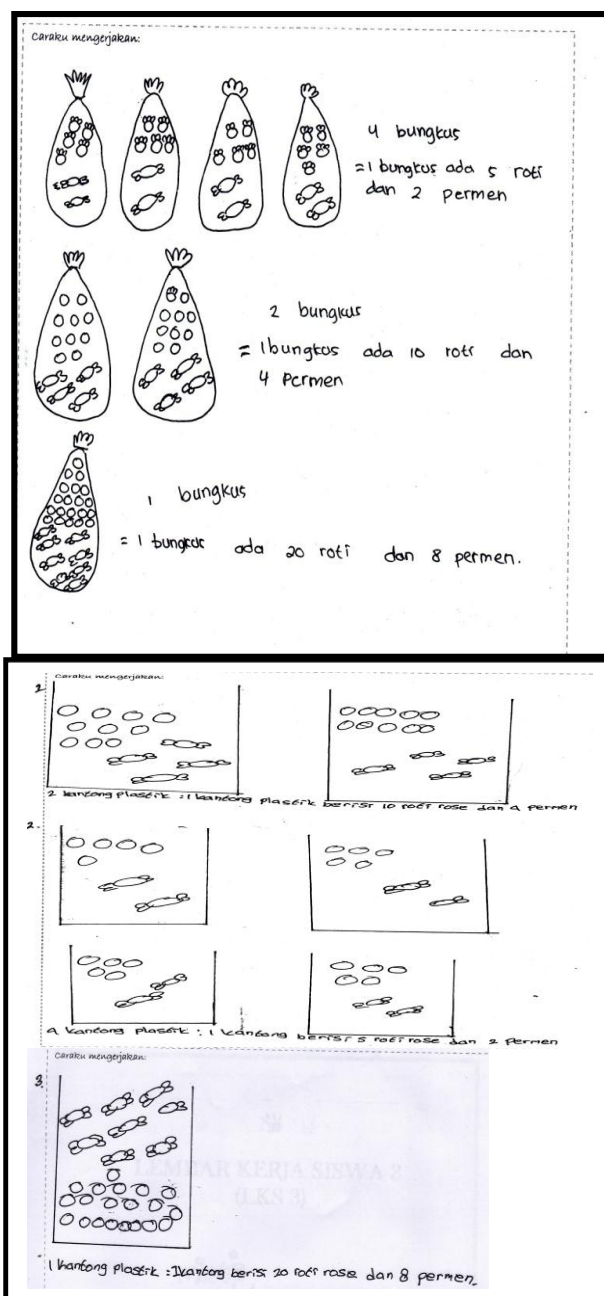 Caraku mengerjakan:
4 bungkus
= 1 bungkus ada 5 roti
dan 2 permen
2 bungkus
= 1 bungkus ada 10 roti dan
4 permen
1 bungkus
= 1 bungkus ada 20 roti dan 8 permen.
Caraku mengerjakan:
1.
2 kantong plastik : 1 kantong plastik berisi 10 roti rose dan 4 permen
2.
4 kantong plastik : 1 kantong berisi 5 roti rose dan 2 permen
Caraku mengerjakan:
3.
LEMBAR KERJA SISWA 3
(LKS 3)
1 kantong plastik : 1 kantong berisi 20 roti rose dan 8 permen.